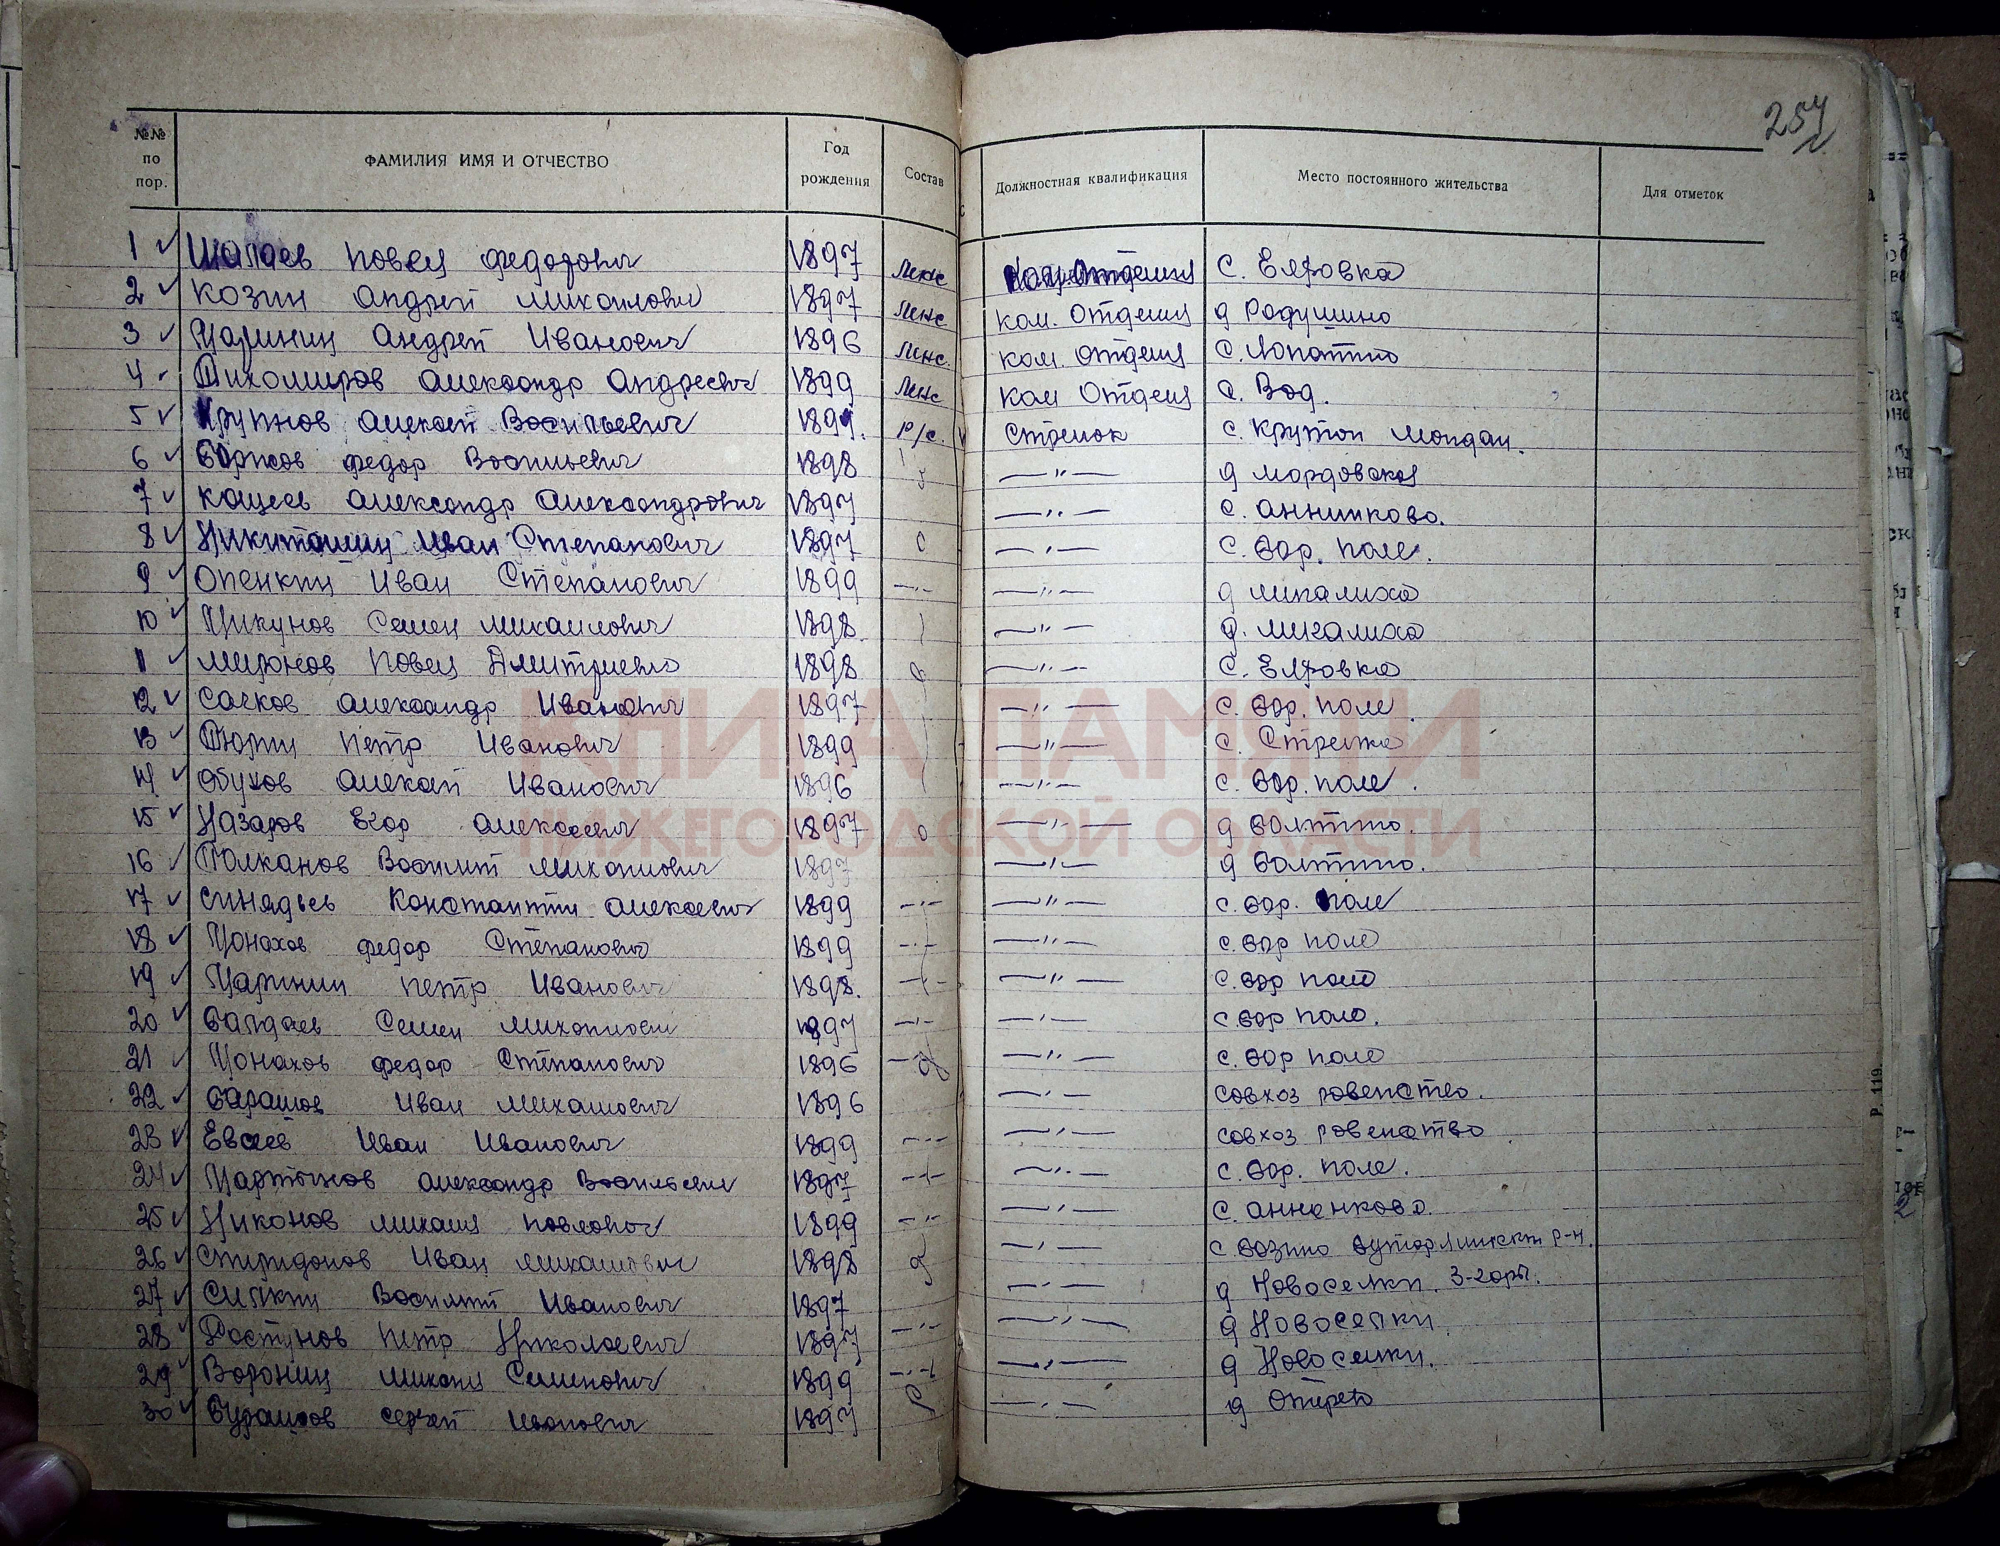 254
№№ по пор. ФАМИЛИЯ ИМЯ И ОТЧЕСТВО Год рождения Состав Должностная квалификация Место постоянного жительства Для отметок
1 Шалаев Павел Федорович 1897 Мнс Ком. Отделен С. Еляровка
2 Козин Андрей Михайлович 1897 Мнс ком. Отделен д Радушино
3 Маринин Андрей Иванович 1896 Мнс. ком. отделен С. Лопатино
4 Тихомиров Александр Андреевич 1899 Мнс ком Отделен с. Вад.
5 Крупнов Алексей Васильевич 1899. р/с. Стрелок с. Крутой Майдан.
6 Борисов Федор Васильевич 1898 —"— д Мордовская
7 Кащеев Александр Александрович 1897 —"— с. Анненково.
8 Никитошин Иван Степанович 1897 —"— с. Вар. поле.
9 Опенкин Иван Степанович 1899 —"— —"— д Михалиха
10 Пикунов Семен Михайлович 1898 —"— д. Михалиха
11 Миронов Павел Дмитриевич 1898 —"— С. Еляровка
12 Сачков Александр Иванович 1897 —"— с. Вар. поле
13 Тюрин Петр Иванович 1899 —"— с. Стрелка
14 Обухов Алексей Иванович 1896 —"— с. Вар. поле.
15 Назаров Егор Алексеевич 1897 —"— д Болтино.
16 Полканов Василий Михайлович 1897 —"— д Болтино.
17 Синядьев Константин Алексеевич 1899 —"— —"— с. Вар. поле
18 Монахов Федор Степанович 1899 —"— —"— с. Вар поле
19 Маринин Петр Иванович 1898. —"— с. Вар поле
20 Балдаев Семен Михайлович 1897 —"— с. Вар поле.
21 Монахов Федор Степанович 1896 —"— —"— с. Вар поле
22 Барашов Иван Михайлович 1896 —"— совхоз равенство.
23 Евсеев Иван Иванович 1899 —"— —"— совхоз равенство
24 Мартынов Александр Васильевич 1897 —"— с. Вар. поле.
25 Никонов Михаил Павлович 1899 —"— —"— с. Анненково.
26 Спиридонов Иван Михайлович 1898 —"— с Базино Бутурлинский р-н.
27 Силкин Василий Иванович 1897 —"— д Новоселки. 3-горы.
28 Растунов Петр Николаевич 1897 —"— —"— д Новоселки.
29 Воронин Михаил Семенович 1899 —"— д Новоселки.
30 Бурашов Сергей Иванович 1897 —"— д
Р. 119.
КНИГА ПАМЯТИ
НИЖЕГОРОДСКОЙ ОБЛАСТИ